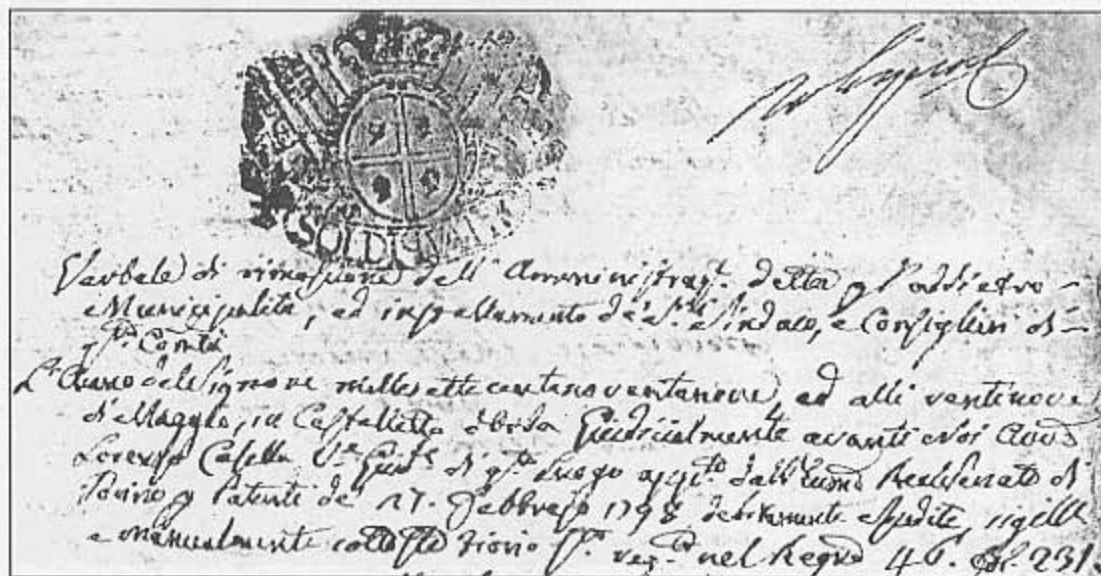 SOLDI
Verbale di rimozione dell' Amministraz.e della p l'addietro
Municipalità, ed installamento de' S.ri Sindaco, e Consiglieri di
q.sta Com.tà
L'Anno del Signore mille sette cento novantanove, ed alli ventinove
di Maggio, in Castelletto d'Orba Giudicialmente avanti Noi Avv.o
Lorenzo Casella V.e Giud.e di q.sto Luogo dall' Ecc.mo Real Senato di
Torino p Patenti de' 27. Febbrajo 1798 debitamente spedite, sigill.e
e manualmente nel Reg.o 46. fol. 231.